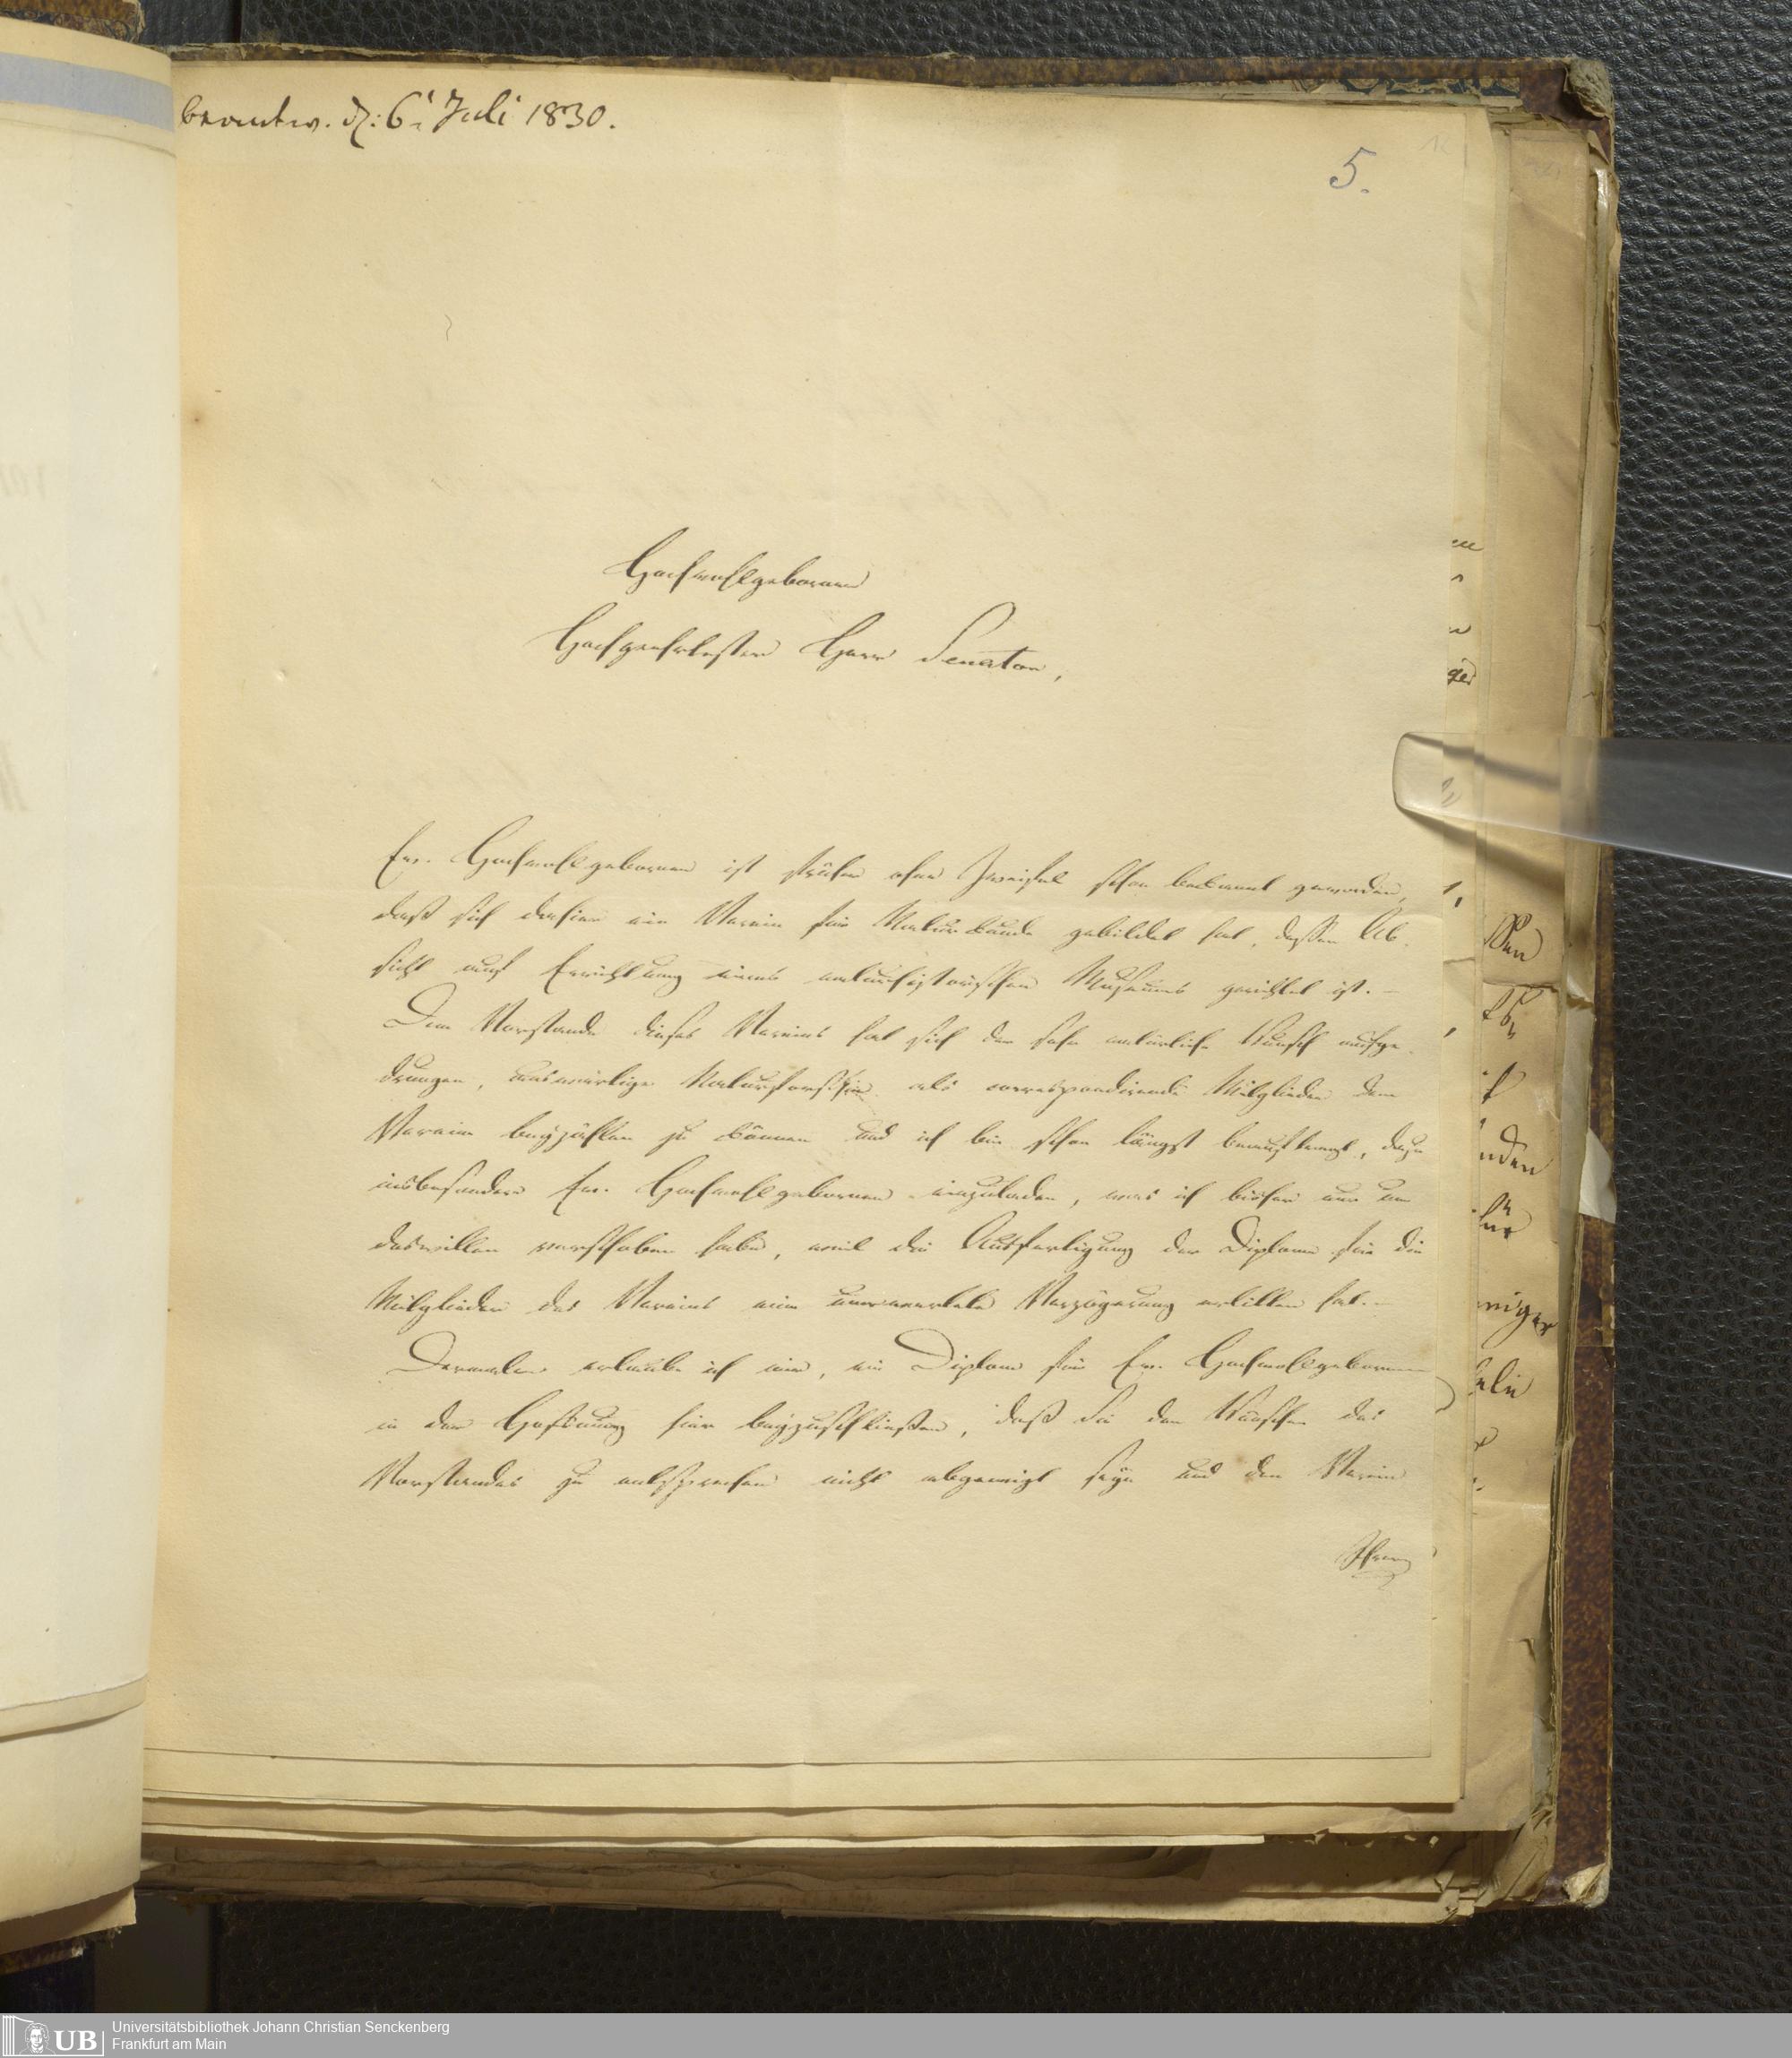 beantw. d: 6t Juli 1830.
5.
Hochwohlgeborner
Hochgeehrtester Herr Senator,
Ew. Hochwohlgeboren ist früher ohne Zweifel schon bekannt geworden,
daß sich dahier ein Verein für Naturkunde gebildet hat, dessen Ab-
sicht auf Errichtung eines naturhistorischen Museums gerichtet ist. –
Dem Vorstande dieses Vereins hat sich der sehr natürliche Wunsch aufge-
drungen, auswärtige Naturforscher als correspondirende Mitglieder dem
Verein beyzählen zu können und ich bin schon längst beauftragt, dazu
insbesondere Ew. Hochwohlgeboren einzuladen, was ich bisher nur um
deswillen verschoben habe, weil die Ausfertigung der Diplome für die
Mitglieder des Vereins eine unerwartete Verzögerung erlitten hat. –
Dermalen erlaube ich mir, ein Diplom für Ew. Hochwohlgeboren
in der Hoffnung hier beyzuschließen, daß Sie dem Wunsche des
Vorstandes zu entsprechen nicht abgeneigt seyn und den Verein
Ihrer
UB
Universitätsbibliothek Johann Christian Senckenberg
Frankfurt am Main